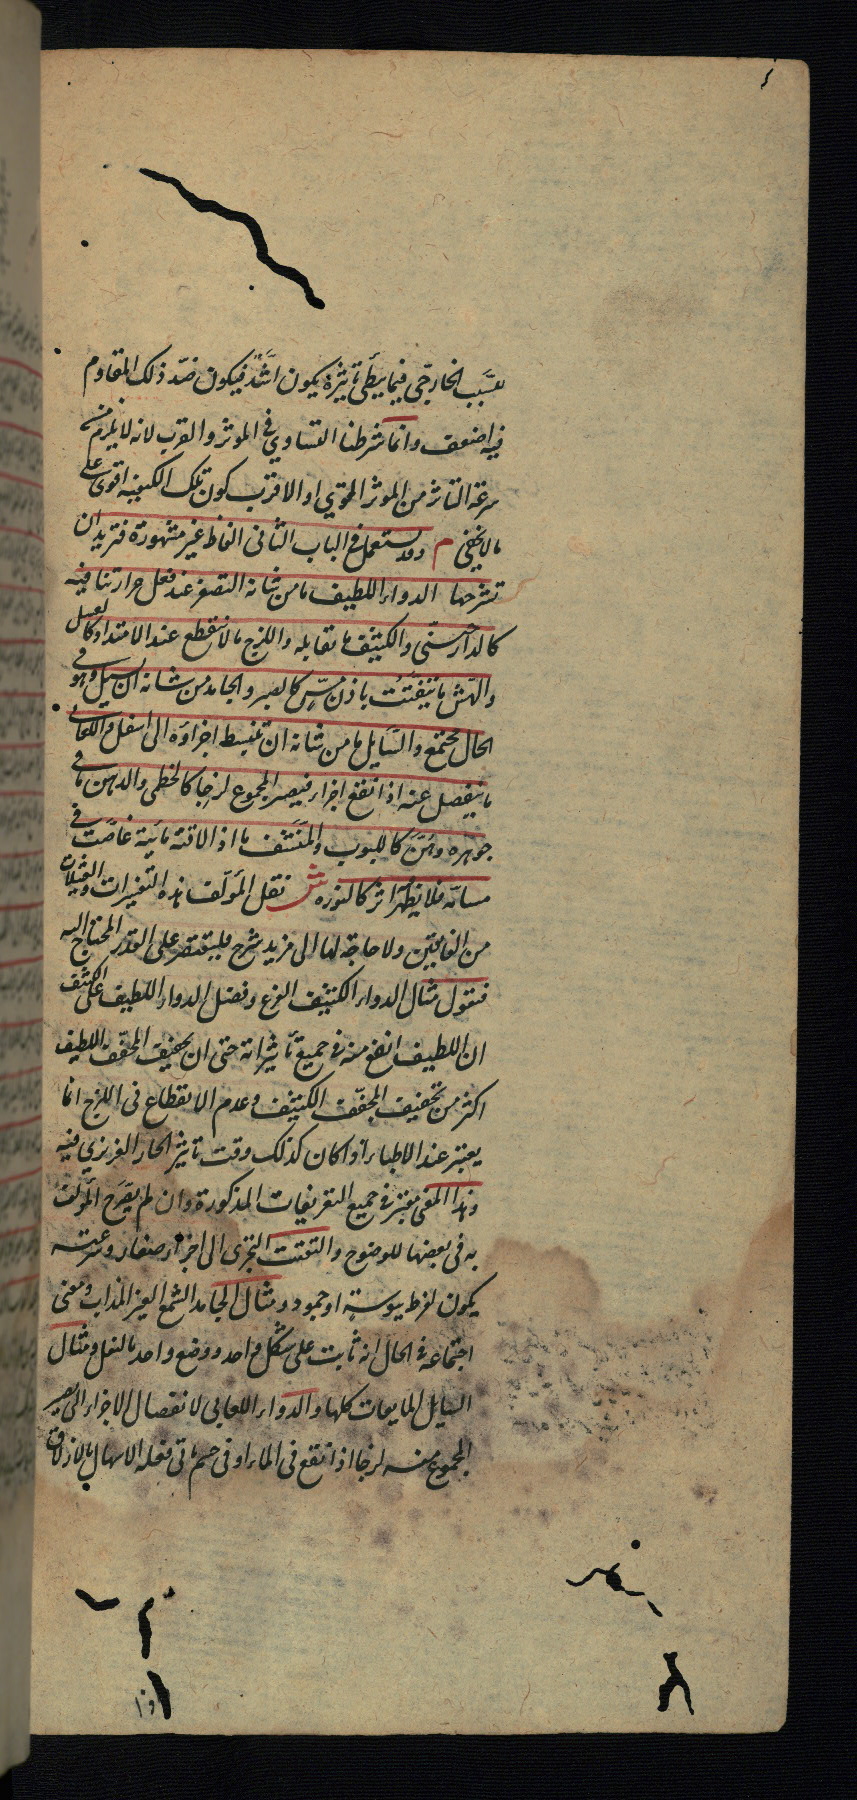 للسبب الخارجي فيما يبطئ تاثيره يكون اشد فيكون ضد ذلك المقاوم
فيه اضعف وانما شرطنا التساوي في الموثر والقرب لانه لا يلزم من
سرعة التاثر من الموثر القوي او الاقرب كون تلك الكيفية اقوى على
ما لا يخفى م وقد يستعمل في الباب الثاني الفاظ غير مشهورة فنريد ان
نشرحها الدواء اللطيف ما من شانه التصغر عند فعل حرارتنا فيه
كالدارصيني والكثيف ما يقابله واللزج ما لا ينقطع عند الامتداد كالعسل
والهش ما يتفتت باذن مس كالصبر والجامد من شانه ان يسيل وهو في
الحال مجتمع والسايل ما من شانه ان تنبسط اجزاؤه الى اسفل واللعابي
ما ينفصل عنه اذا نقع اجزاء فيصير المجموع لزجا كالخطمي والدهن ما في
جوهره دهن كاللبوب والمنشف ما اذا لاقته مائية غاصت في
مسامه فلا يظهر اثر كالنورة ش نقل المؤلف هذه التفسيرات والتمثيلات
من القانون ولا حاجة لها الى مزيد شرح فليقتصر على القدر المحتاج اليه
فنقول مثال الدواء الكثيف القرع وفضل الدواء اللطيف على الكثيف
ان اللطيف انفع منه في جميع تاثيراته حتى ان تجفيف المجفف اللطيف
اكثر من تجفيف المجفف الكثيف وعدم الانقطاع في اللزج انما
يعتبر عند الاطباء اذا كان كذلك وقت تاثير الحار الغريزي فيه
وهذا المعنى معتبر في جميع التعريفات المذكورة وان لم يصرح المؤلف
به في بعضها للوضوح والتفتت التجزى الى اجزاء صغار وسرعته
يكون لفرط يبوسته او جمود ومثال الجامد الشمع الغير المذاب ومعنى
اجتماعه في الحال انه ثابت على شكل واحد ووضع واحد بالفعل ومثال
السايل المايعات كلها والدواء اللعابي لانفصال الاجزاء التي يصير
المجموع منه لزجا اذا نقع في الماء او في جسم مائي فعله الاسهال بالازلاق